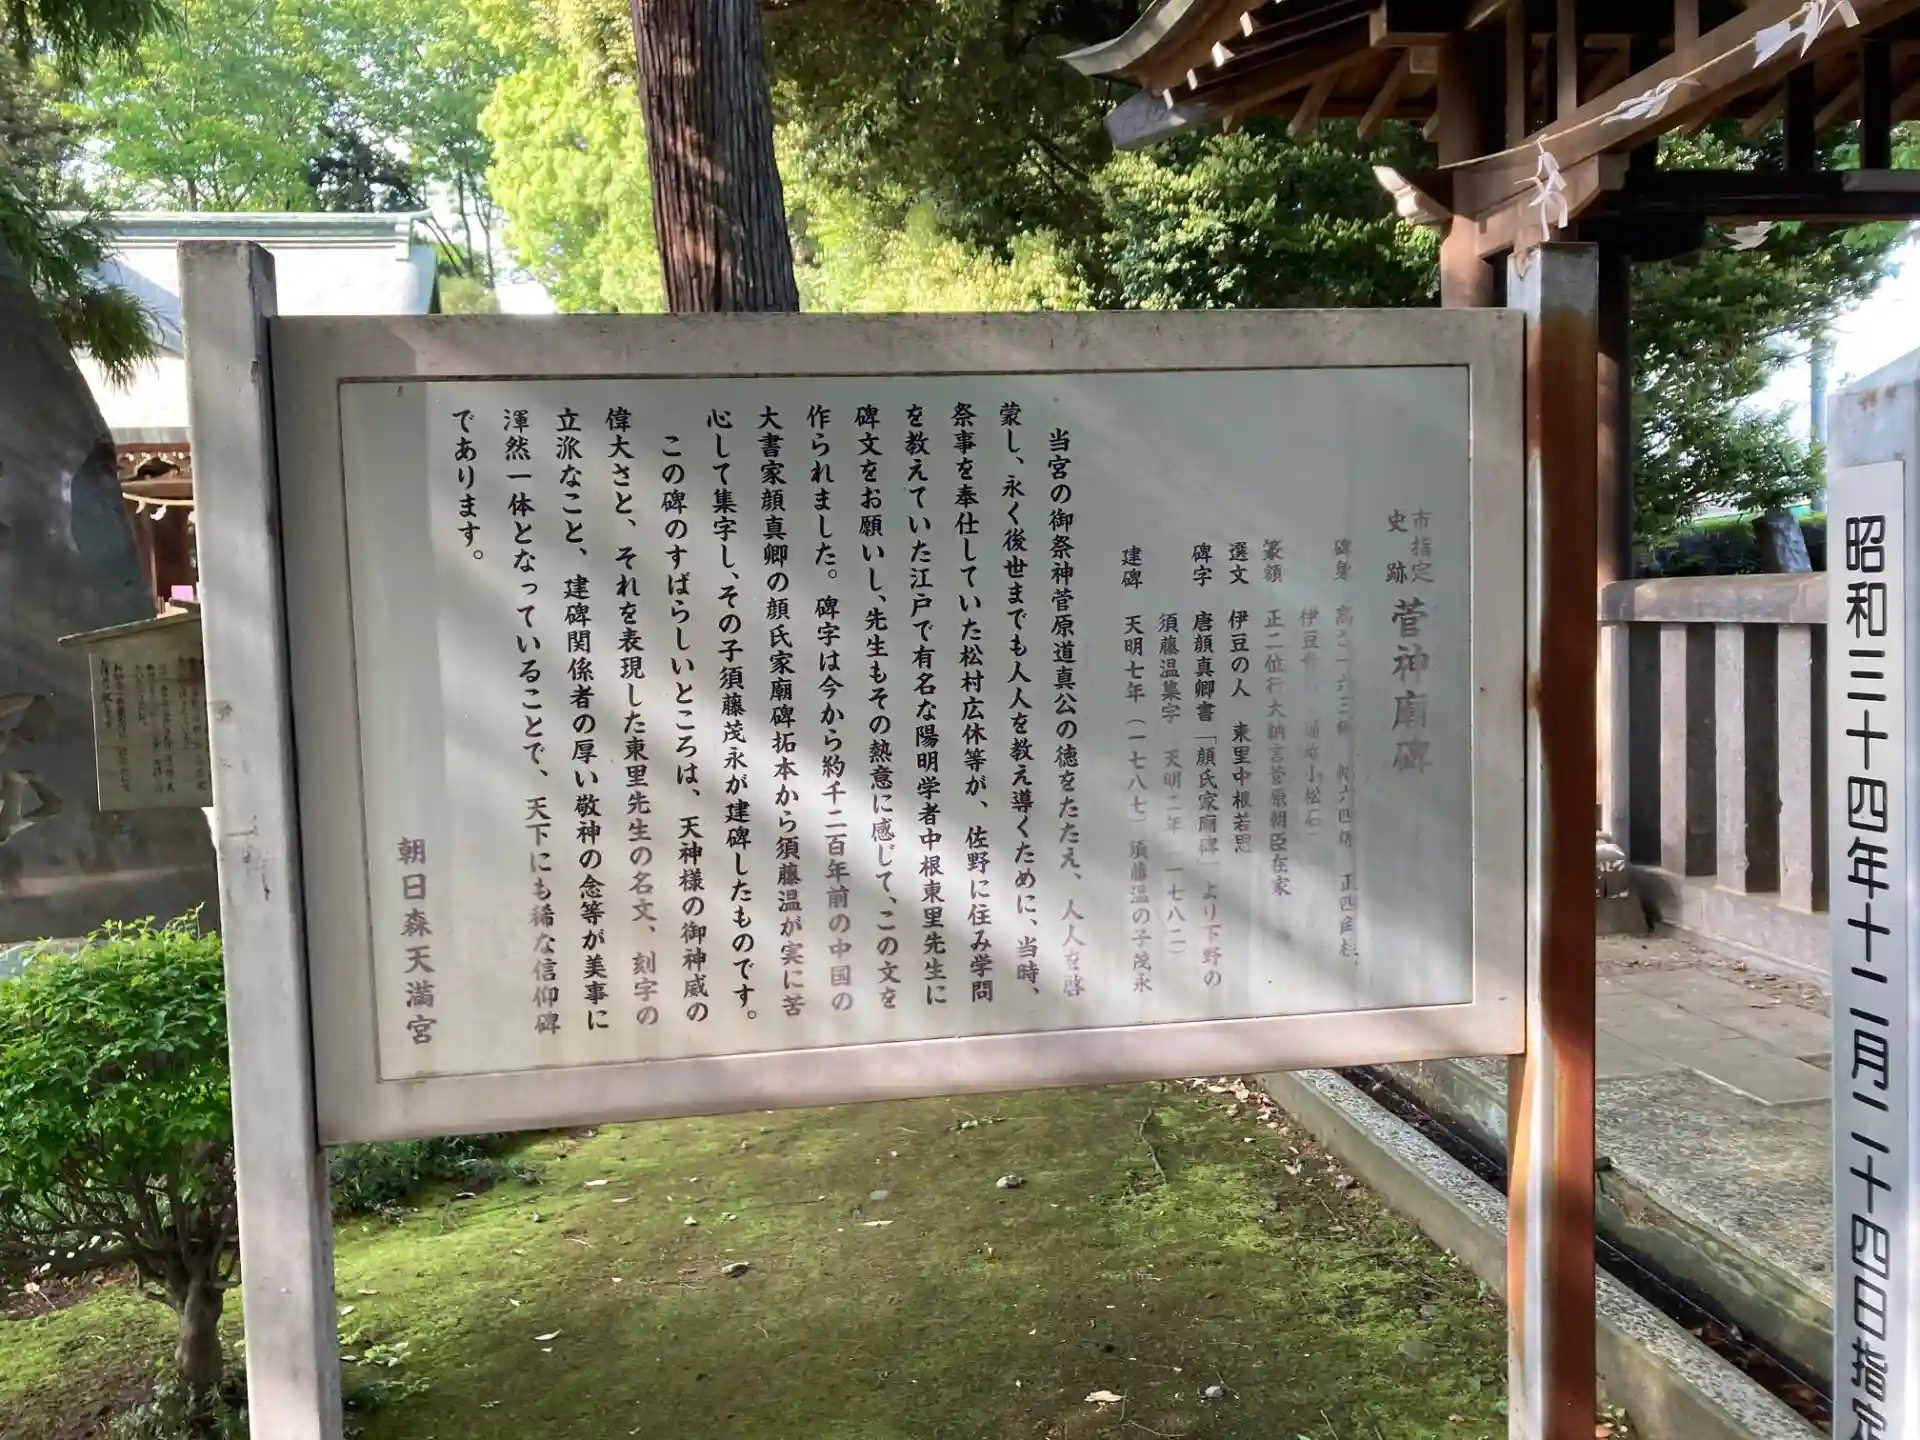 市指定
史跡
菅神廟碑
碑身
伊豆
小松石
篆額 正二位行大納言菅原朝臣在家
選文 伊豆の人 東里中根若思
碑字 唐顔真卿書「顔氏家廟碑」より下野の
須藤温集字 天明二年
建碑 天明七年(一七八七)須藤温の子茂永
当宮の御祭神菅原道真公の徳をたたえ、人人を啓
蒙し、永く後世までも人人を教え導くために、当時、
祭事を奉仕していた松村広休等が、佐野に住み学問
を教えていた江戸で有名な陽明学者中根東里先生に
碑文をお願いし、先生もその熱意に感じて、この文を
作られました。碑字は今から約千二百年前の中国の
大書家顔真卿の顔氏家廟碑拓本から須藤温が実に苦
心して集字し、その子須藤茂永が建碑したものです。
この碑のすばらしいところは、天神様の御神威の
偉大さと、それを表現した東里先生の名文、刻字の
立派なこと、建碑関係者の厚い敬神の念等が美事に
渾然一体となっていることで、天下にも稀な信仰碑
であります。
朝日森天満宮
昭和三十四年十二月二十四日指定